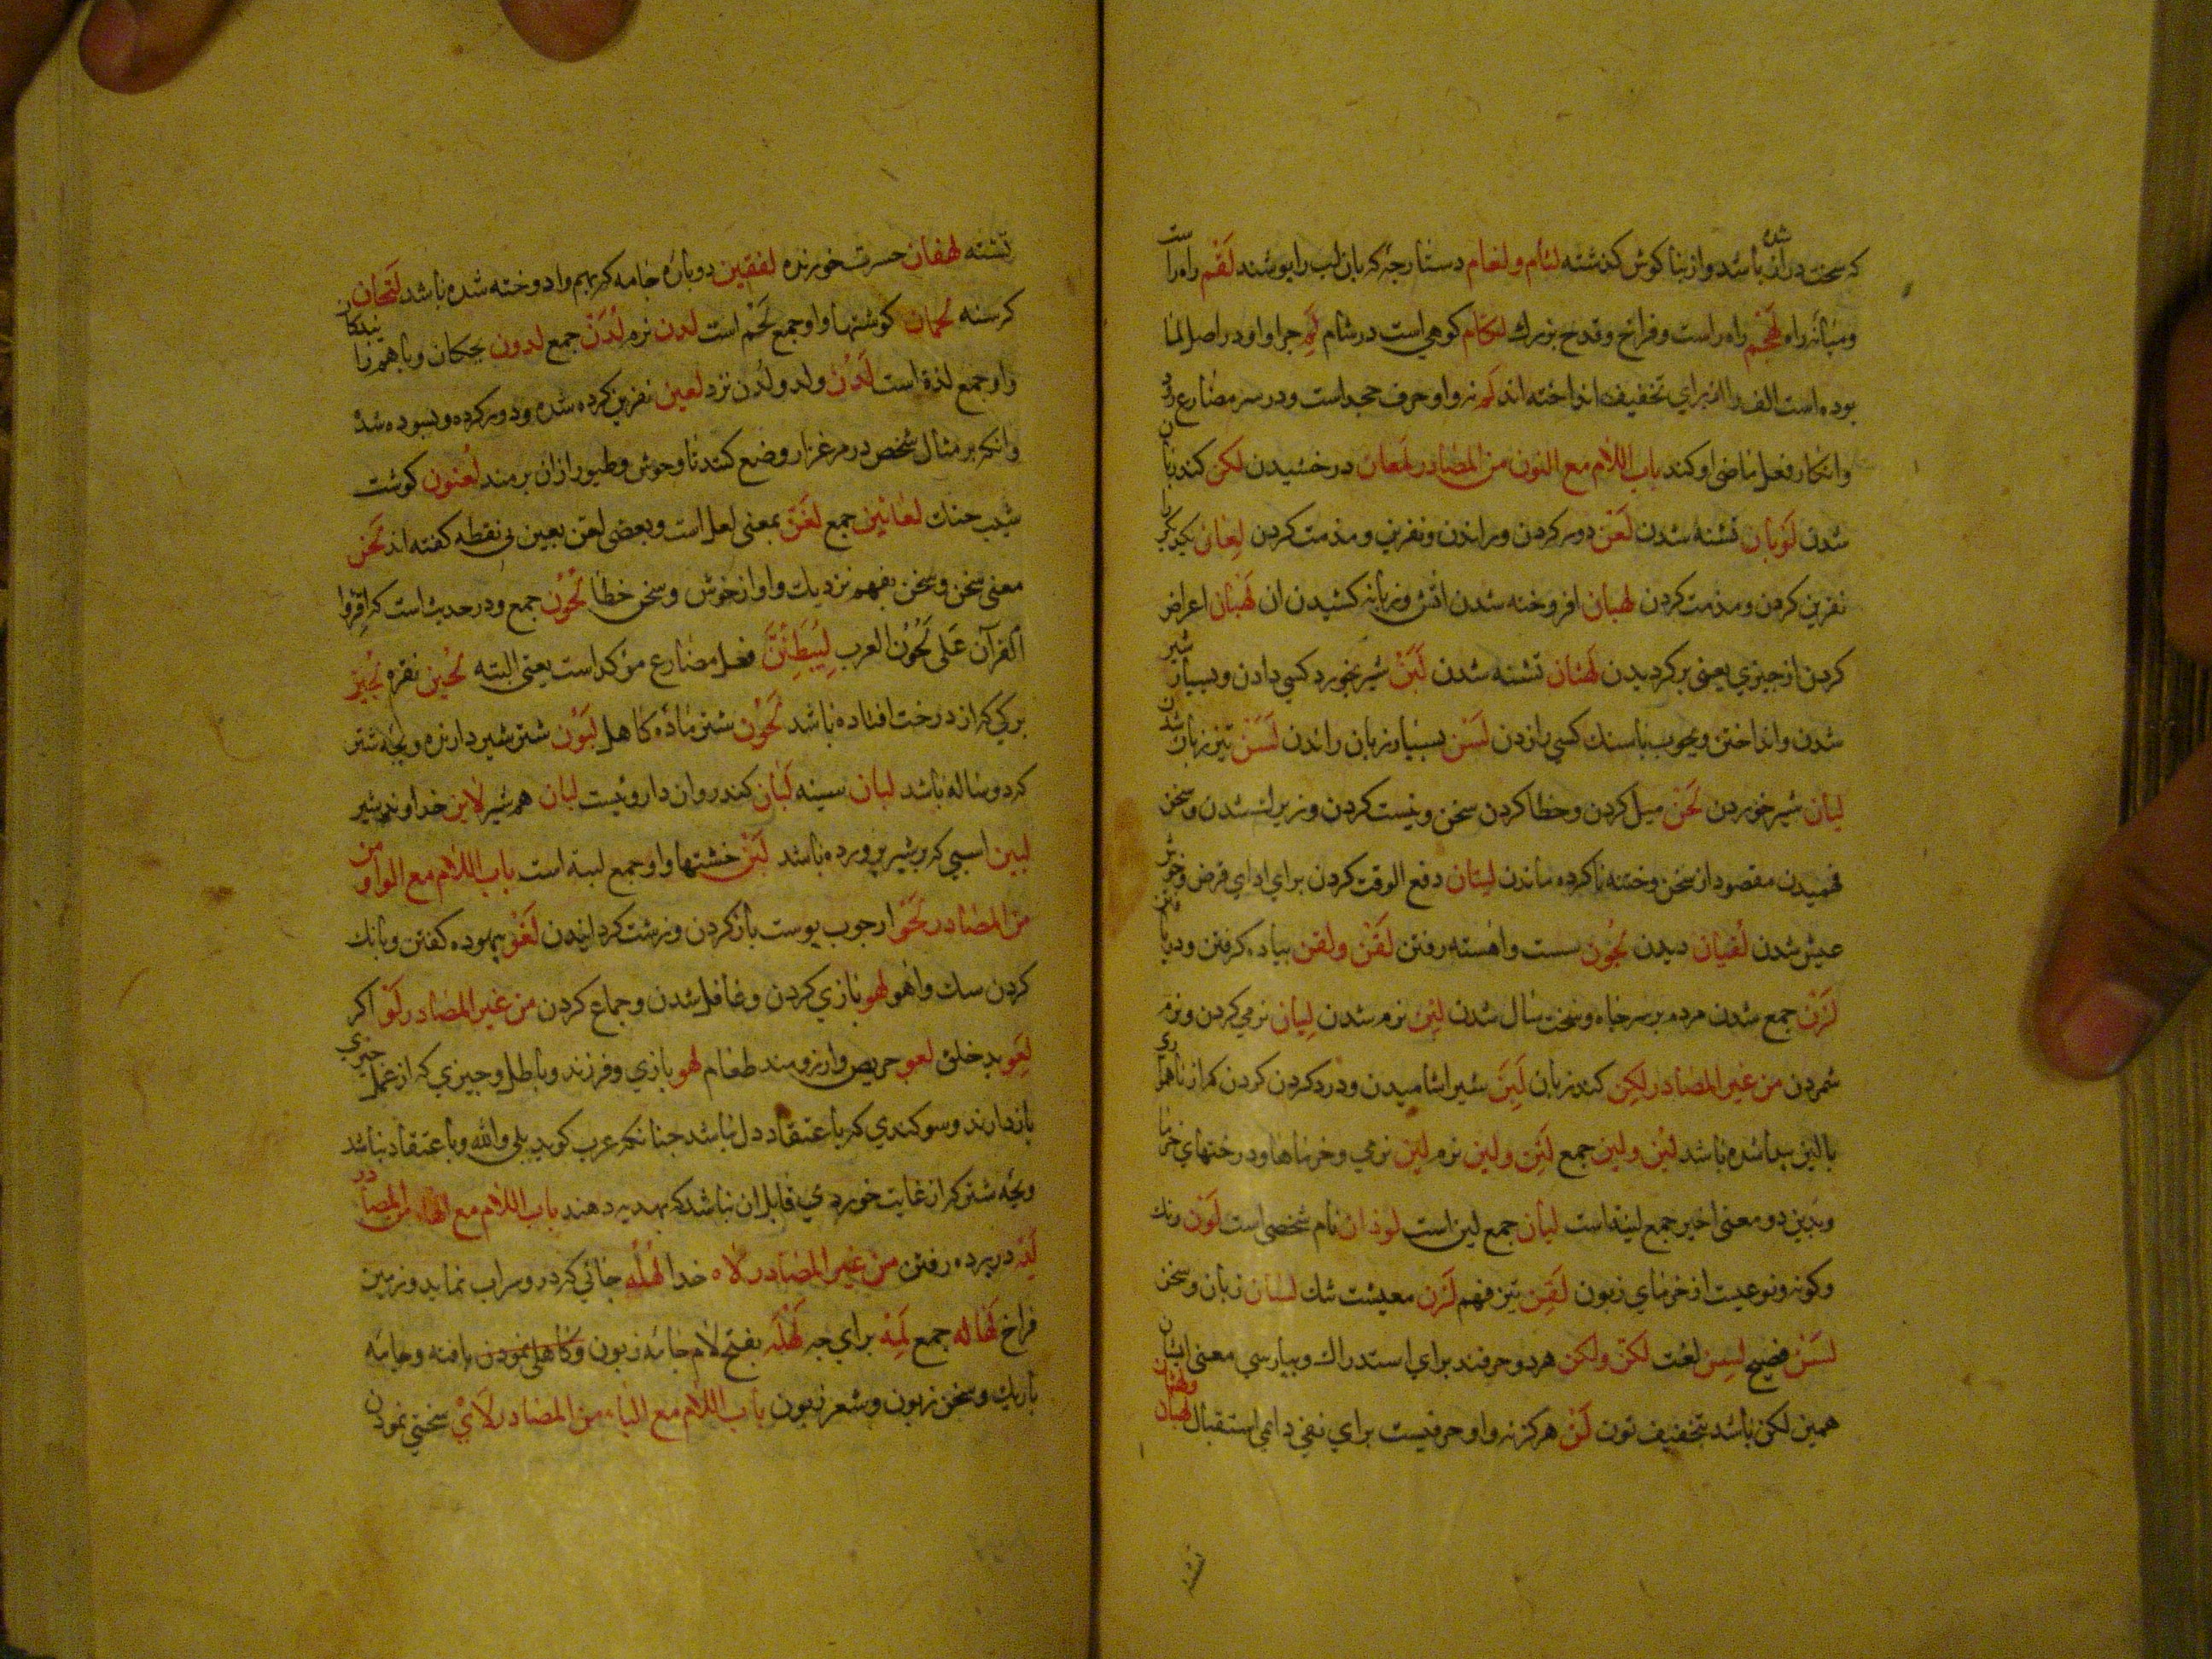 که سخت دران باشد و از بنا کوش کذشته لثام و لغام دستارجه که بان لب را پوشند لقم راه راست
و میانه راه لهجم راه راست و فراخ و قدح بزرك لکام کوهی است در شام لم جرا و او در اصل لما
بوده است الف را از برای تخفیف انداخته اند لم نه و او حرف جحد است و در سر مضارع
و انکار فعل ماضی او کند باب اللام مع النون من المصادر لمعان درخشیدن لکن کند زبان
شدن لوبان تشنه شدن لعن دور کردن و راندن و نفرین و مذمت کردن لعان یکدیکر را
نفرین کردن و مذمت کردن لهبان افروخته شدن اتش و زبانه کشیدن ان لهیان اعراض
کردن از جیزی یعنی بر کردیدن لهثان تشنه شدن لبن شیر بخورد کسی دادن و بسیار شیر
شدن و انداختن و بجوب یا سنك کسی را زدن لسن بسیار زبان راندن لسن تیز زبان شدن
لبان شیر خوردن لحن میل کردن و خطا کردن سخن و نیست کردن و زیرك شدن و سخن
فهمیدن مقصود از سخن و ختنه ناکرده ماندن لیان دفع الوقت کردن برای ادای قرض و خوش
عیش شدن لقیان دیدن لجون سست و اهسته رفتن لقن و لقن بیاد کرفتن و دریافتن
لزن جمع شدن مردم بر سر جاه و سخت سال شدن لین نرم شدن لیان نرمی کردن و نرم
شمردن من غیر المصادر لکن کند زبان لبن شیر اشامیدن و درد کردن کردن که از ناهمواری
بالین پیدا شده باشد لین و لین جمع لین و لین نرم لین نرمی و خرماها و درختهای خرما
و بدین دو معنی اخیر جمع لینة است لیان جمع لین است لوذان نام شخصی است لون رنك
و کونه و نوعیست از خرمای زبون لقن تیز فهم لزن معیشت تنك لسان زبان و سخن
لسن فصیح لسن لغت لکن و لکن هر دو حرفند برای استدراك و بپارسی معنی ایشان
همین لکن باشد بتخفیف نون لن هرکز نه و او حرفیست برای نفی دایمی استقبال لهبان و لهثان
تشنه لهفان حسرت خورنده لفقین دو باره جامه که بهم وادوخته شده باشد لتحان
کرسنه لحمان کوشتها و او جمع لحم است لدن نرم لدن جمع لدون یجکان و باهم زایندکان
و او جمع لدة است لدن و لد و لدن نزد لعین نفرین کرده شده و دور کرده و بسوده شده
و انکه بر مثال شخص در مرغزار وضع کنند تا وحوش و طیور از ان برمند لغنون کوشت
شیب حنك لغانین جمع لغن بمعنی لعل است و بعضی لعن بعین بی نقطه کفته اند لحن
معنی سخن و سخن بفهم نزدیك و اواز خوش و سخن خطا لحون جمع و در حدیث است که اقرؤا
القرآن علی لحون العرب لیبطئن فعل مضارع مؤکد است یعنی البته لجین نقره لجین
برکی که از درخت افتاده باشد لجون شتر ماده کاهل لبون شتر شیر دارنده و بجه شتر
که دو ساله باشد لبان سینه لبان کندر و ان داروئیست لبان هم شیر لابن خداوند شیر
لبین اسبی که بر شیر پرورده باشد لبن خشتها و او جمع لبنه است باب اللام مع الواو من
من المصادر لحو از جوب پوست باز کردن و زشت کردانیدن لغو بیهوده کفتن و بانك
کردن سك و اهو لهو بازی کردن و غافل شدن و جماع کردن من غیر المصادر لو اکر
لعو بد خلق لعو حریص و ارزومند طعام لهو بازی و فرزند و باطل و جیزی که از عمل خیری
بازدارند و سوکندی که با عتقاد دل نباشد جنانکه عرب کوید بلی والله و با عتقاد نباشد
و بجه شتر که از غایت خوردی قابل ان نباشد که بهدیه دهند باب اللام مع الهاء من المصادر
لیه در پرده رفتن من غیر المصادر لاه خدا لهله جائی که در و سراب نماید و زمین
فراخ لهاله جمع لمه برای جه لهله بفتح لام جامه زبون و کاهلی نمودن بافته و جامه
باریك و سخن زبون و شعر زبون باب اللام مع الیاء من المصادر لای سختی نمودن